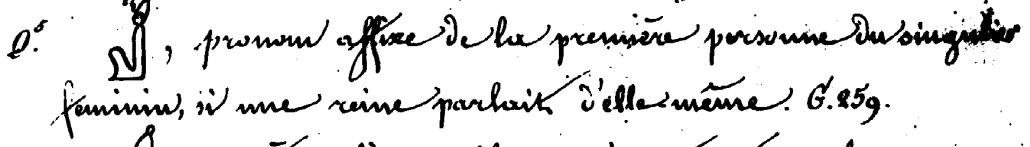 2.° 𓁐, pronom affixe de la première personne du singulier
féminin, si une reine parlait d'elle-même. G. 259.